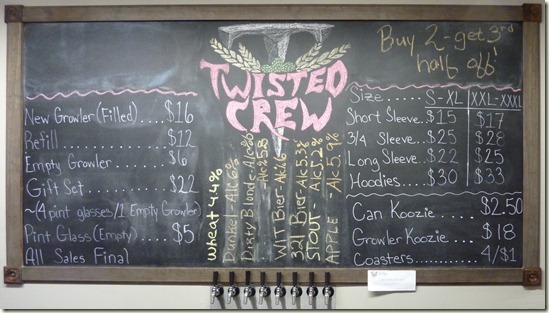 TWISTED
CREW
Buy 2-get 3rd
half off!
New Growler (Filled).... $16
Refill............... $12
Empty Growler..... $6
Gift Set........... $22
~(4 pint glasses/1 Empty Growler)
Pint Glass (Empty).... $5
All Sales Final
Wheat 4.4%
Dunkel-Alc 6%
Dirty Blonde-Alc%
WIT Bier-Alc
321 Bier-Alc 5.3%
STOUT-Alc 5.2%
APPLE-Alc 5.9%
Size...... S-XL XXL-XXXL
Short Sleeve.. $15 $17
3/4 Sleeve... $25 $28
Long Sleeve.. $22 $25
Hoodies.... $30 $33
Can Koozie... $2.50
Growler Koozie.... $18
Coasters......... 4/$1